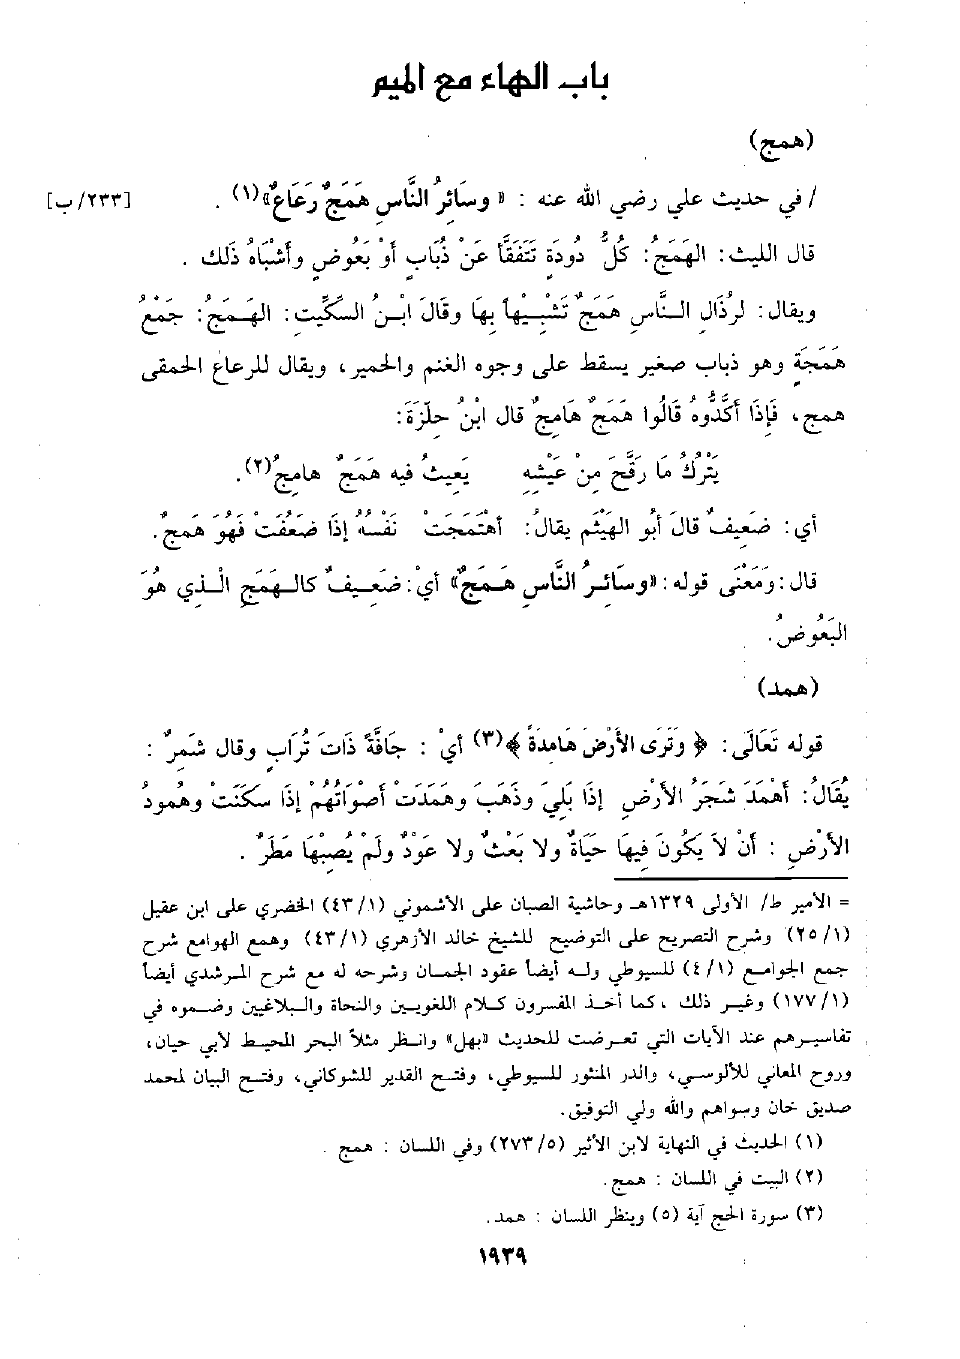 باب الهاء مع الميم
(همج)
/ في حديث علي رضي الله عنه : « وسَائِرُ النَّاسِ هَمَجٌ رَعَاعٌ»(١) . [٢٣٣/ب]
قال الليث: الهَمَجُ: كُلُّ دُودَةٍ تَتَفَقَّأ عَنْ ذُبَابٍ أَوْ بَعُوضٍ وأَشْبَاهُ ذَلك .
ويقال: لرُذَالِ النَّاسِ هَمَجٌ تَشْبِيْهاً بِهَا وقَالَ ابْنُ السكِّيت: الهَمَجُ: جَمْعُ
هَمَجَةٍ وهو ذباب صغير يسقط على وجوه الغنم والحمير، ويقال للرعاع الحمقى
همج، فَإِذَا أَكَّدُّوهُ قَالُوا هَمَجٌ هَامِجٌ قال ابْنُ حلِّزَةَ:
يَتْرُكُ مَا رَقَّحَ مِنْ عَيْشِهِ يَعِيثُ فيه هَمَجٌ هامِجٌ(٢).
أي: ضَعِيفٌ قَالَ أبُو الهَيْثَمِ يقالُ: أهْتَمَجَتْ نَفْسُهُ إذَا ضَعُفَتْ فَهُوَ هَمجٌ.
قال: ومَعْنَى قوله: «وسَائِرُ النَّاسِ هَمَجٌ» أيْ: ضَعِيفٌ كالهَمَجِ الْذي هُوَ
البَعُوضُ.
(همد)
قوله تَعَالَى: ﴿ وَتَرَى الأَرْضَ هَامدَةً ﴾(٣) أيْ : جَافَّةً ذَاتَ تُرَابٍ وقال شَمِرٌ :
يُقَالُ: أهْمَدَ شَجَرُ الأرْضِ إذَا بَلَيَ وذَهَبَ وهَمَدَتْ أصْوَاتُهُمْ إذَا سكَنَتْ وهُمودُ
الأرْضِ : أنْ لاَ يَكُونَ فِيهَا حَيَاةٌ ولا بَعْثٌ ولا عَوْدٌ ولَمْ يُصِبْهَا مَطَرٌ .
= الأمير ط/ الأولى ١٣٢٩هـ وحاشية الصبان على الأشموني (٤٣/١) الخضري على ابن عقيل
(٢٥/١) وشرح التصريح على التوضيح للشيخ خالد الأزهري (٤٣/١) وهمع الهوامع شرح
جمع الجوامع (٤/١) للسيوطي وله أيضاً عقود الجمان وشرحه له مع شرح المرشدي أيضاً
(١٧٧/١) وغير ذلك ، كما أخذ المفسرون كلام اللغويين والنحاة والبلاغيين وضموه في
تفاسيرهم عند الآيات التي تعرضت للحديث «بهل» وانظر مثلاً البحر المحيط لأبي حيان،
وروح المعاني للألوسي، والدر المنثور للسيوطي، وفتح القدير للشوكاني، وفتح البيان لمحمد
صديق خان وسواهم والله ولي التوفيق.
(١) الحديث في النهاية لابن الأثير (٢٧٣/٥) وفي اللسان : همج .
(٢) البيت في اللسان : همج.
(٣) سورة الحج آية (٥) وينظر اللسان : همد.
١٩٣٩